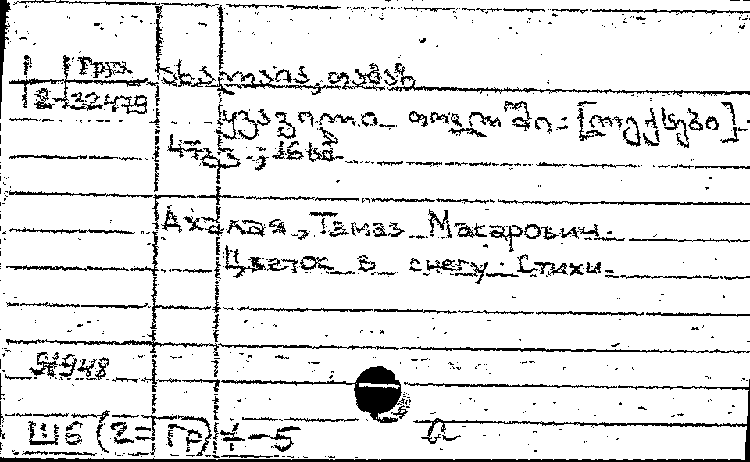 Груз
2-32479
ახალაია, თამაზ
ყვავილი თოვლში: [ლექსები]
47 გვ.; 16 სმ
Ахалая, Тамаз Макарович.
Цветок в снегу: Стихи.
Я1948
Ш6(2=Гр)7-5
a